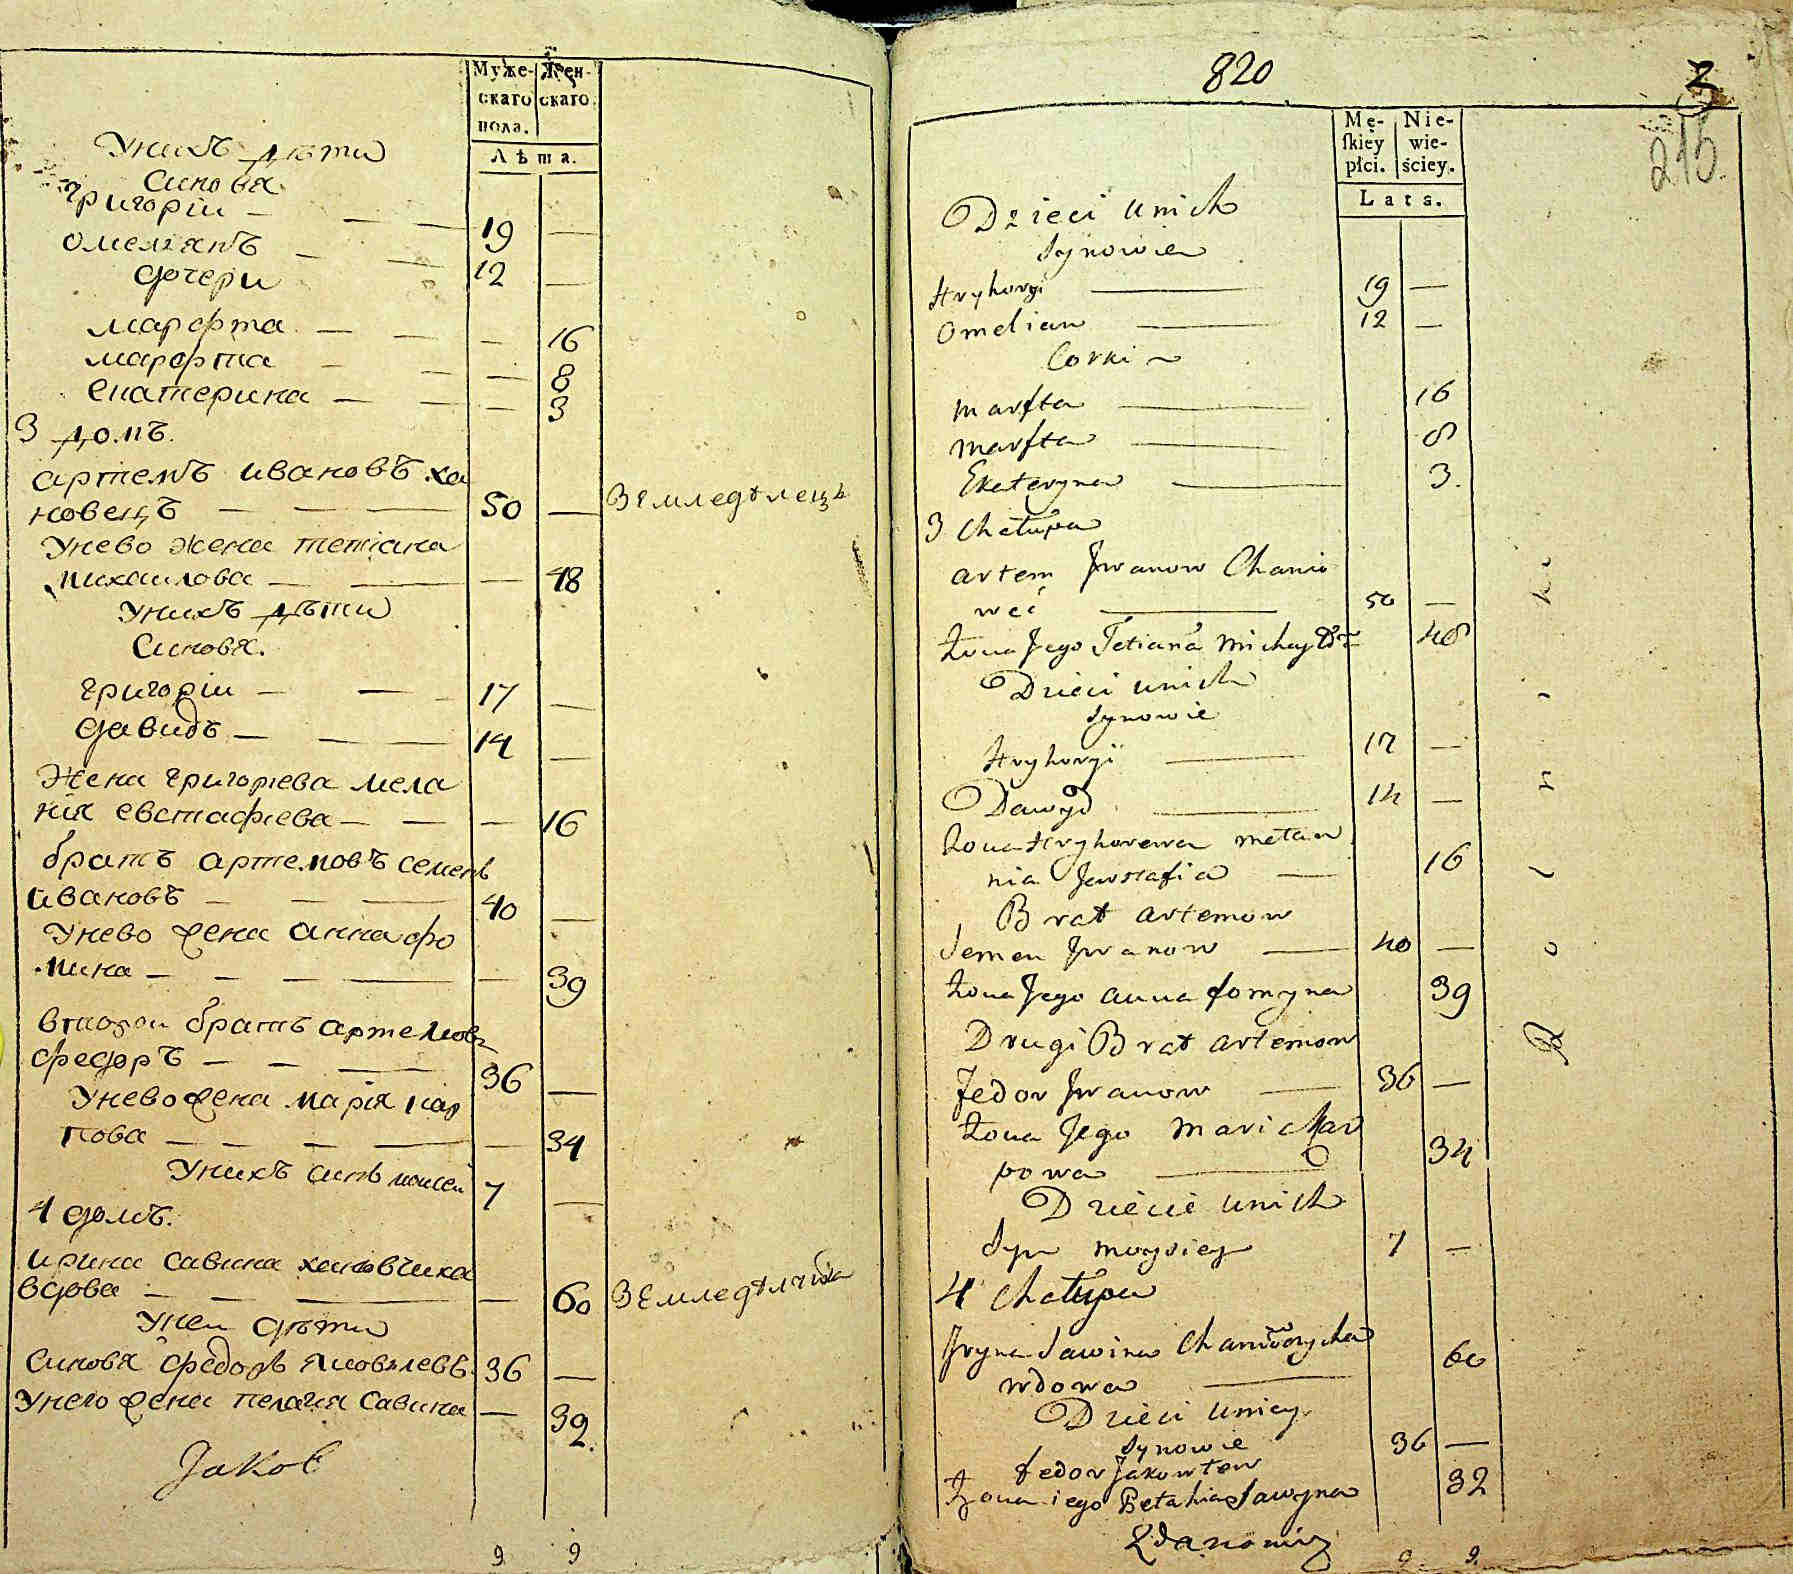 Муже- Жен-
скаго скаго
пола.
Лѣта.
Унихъ дѣти
Синовя
григорiи — — — 19 —
омелянъ — — 12 —
дочери
марфта — — — 16
марфта — — — 8
екатерина — — — 3
3 домъ.
артемъ ивановъ ха
новецъ — — — 50 — Земледѣлецъ
Унево жена тетiана
михаилова — — — 48
Унихъ дѣти
Синовя.
григорiи — — 17 —
давидъ — — — 14 —
Жена григорiева мела
нiя евстафиева — — — 16
братъ артемовъ семенъ
ивановъ — — — 40 —
Унево жена анна фо
мина — — — — — 39
второи братъ артемовъ
федоръ — — — 36 —
Унево жена марiя кар
пова — — — — — 34
Унихъ синъ моисеи 7 —
4 домъ.
ирина савина хановчиха
вдова — — — — 60 Земледѣлчиха
Унеи дѣти
Синовя федоръ яковлевъ 36 —
Унего жена пелагия Савина — 32.
Jakob
9 9
820
2
215.
Mę- Nie-
ſkiey wie-
płci. ściey.
Lata.
Dzieci unich
Synowie
Hryhorÿi — 19 —
Omelian — 12 —
Corki
marfta — 16
marfta — 8
Ekateryna — 3.
3 Chałupa
artem Jwanow Chano
wec — 50 —
Żona Jego Tetiana Michayło 48
Dzieci unich
Synowie
Hryhoryi — 17 —
Dawyd — 14 —
Żona Hryhorewa mełan
nia Jewstafia — 16
Brat artemow
Semen Jwanow — 40 —
Żona Jego anna fomyna 39
Drugi Brat artemow
Fedor Jwanow — 36 —
Żona Jego mari Kar
powa — 34
Dziecie unich
Syn moysiey 7 —
4 Chałupa
Jryna Sawina Chanowczycha 60
wdowa —
Dzieci uniey
Synowie 36 —
fedor Jakowlew
Żona iego Pełahia Sawyna 32
Zdanowicz
9 9.
Rolniki